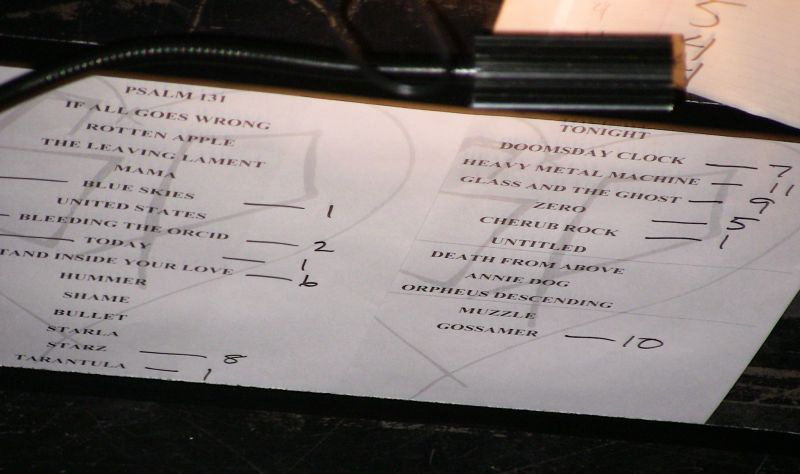 PSALM 131
IF ALL GOES WRONG
ROTTEN APPLE
THE LEAVING LAMENT
MAMA
BLUE SKIES
UNITED STATES — 1
BLEEDING THE ORCID
TODAY — 2
TAND INSIDE YOUR LOVE — 1
HUMMER — 6
SHAME
BULLET
STARLA
STARZ — 8
TARANTULA — 1
TONIGHT
DOOMSDAY CLOCK — 7
HEAVY METAL MACHINE — 11
GLASS AND THE GHOST — 9
ZERO
CHERUB ROCK — 5
UNTITLED — 1
DEATH FROM ABOVE
ANNIE DOG
ORPHEUS DESCENDING
MUZZLE
GOSSAMER — 10
5